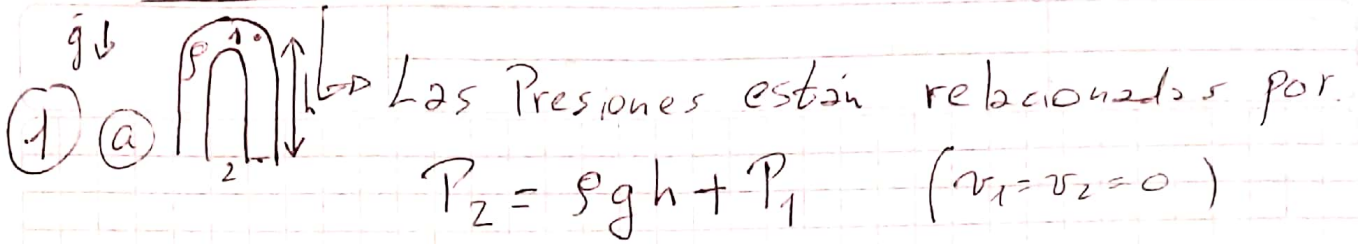 g↓
① ⓐ ρ 1 2 h → Las Presiones están relacionadas por.
P₂ = ρgh + P₁ (v₁ = v₂ = 0)